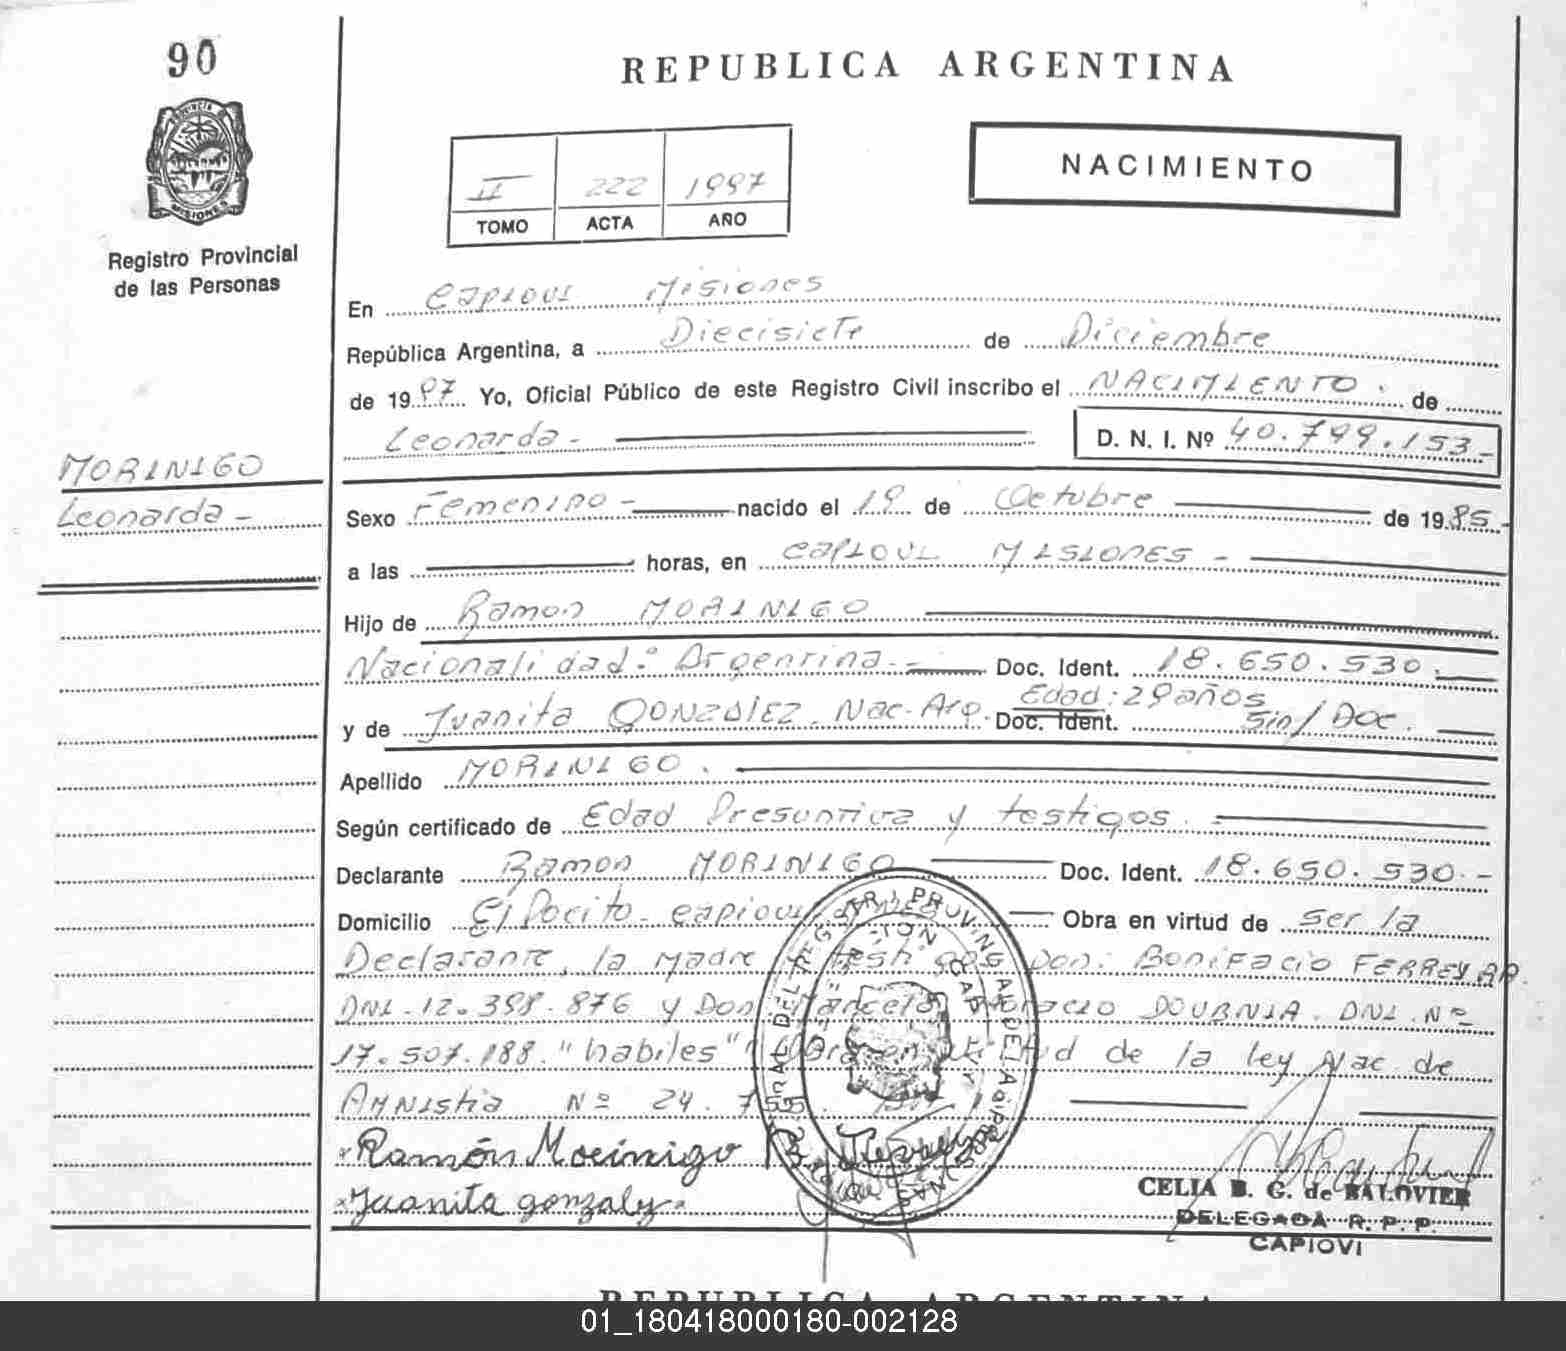 90
REPUBLICA ARGENTINA
NACIMIENTO
II 222 1997
TOMO ACTA AÑO
PROVINCIA DE
MISIONES
Registro Provincial
de las Personas
En Capiovi Misiones
República Argentina, a Diecisiete de Diciembre
de 1997 Yo, Oficial Público de este Registro Civil inscribo el NACIMIENTO. de
Leonarda - D. N. I. Nº 40.799.153-
MORINIGO
Leonarda -
Sexo Femenino - nacido el 19 de Octubre de 1985-
a las horas, en Capiovi MISIONES -
Hijo de Ramon MORINIGO
Nacionalidad: Argentina - Doc. Ident. 18.650.530.
Edad: 29 años
y de Juanita GONZALEZ. Nac. Arg. Doc. Ident. Sin/Doc.
Apellido MORINIGO.
Según certificado de Edad Presuntiva y testigos.
Declarante Ramon MORINIGO Doc. Ident. 18.650.530.-
Domicilio El Pocito - Capiovi Obra en virtud de ser la
Declarante, la madre testigos Don: Bonifacio FERREYRA
DNI. 12.398.876 y Don Marcelo Horacio DOURNIA. DNI. Nº
17.507.188. "habiles" Obra en virtud de la ley Nac. de
Amnistia Nº 24.755.
Ramón Morinigo
Juanita gonzaly
CELIA B. G. de BALOVIER
DELEGADA R. P. P.
CAPIOVI
REPUBLICA ARGENTINA
01_180418000180-002128